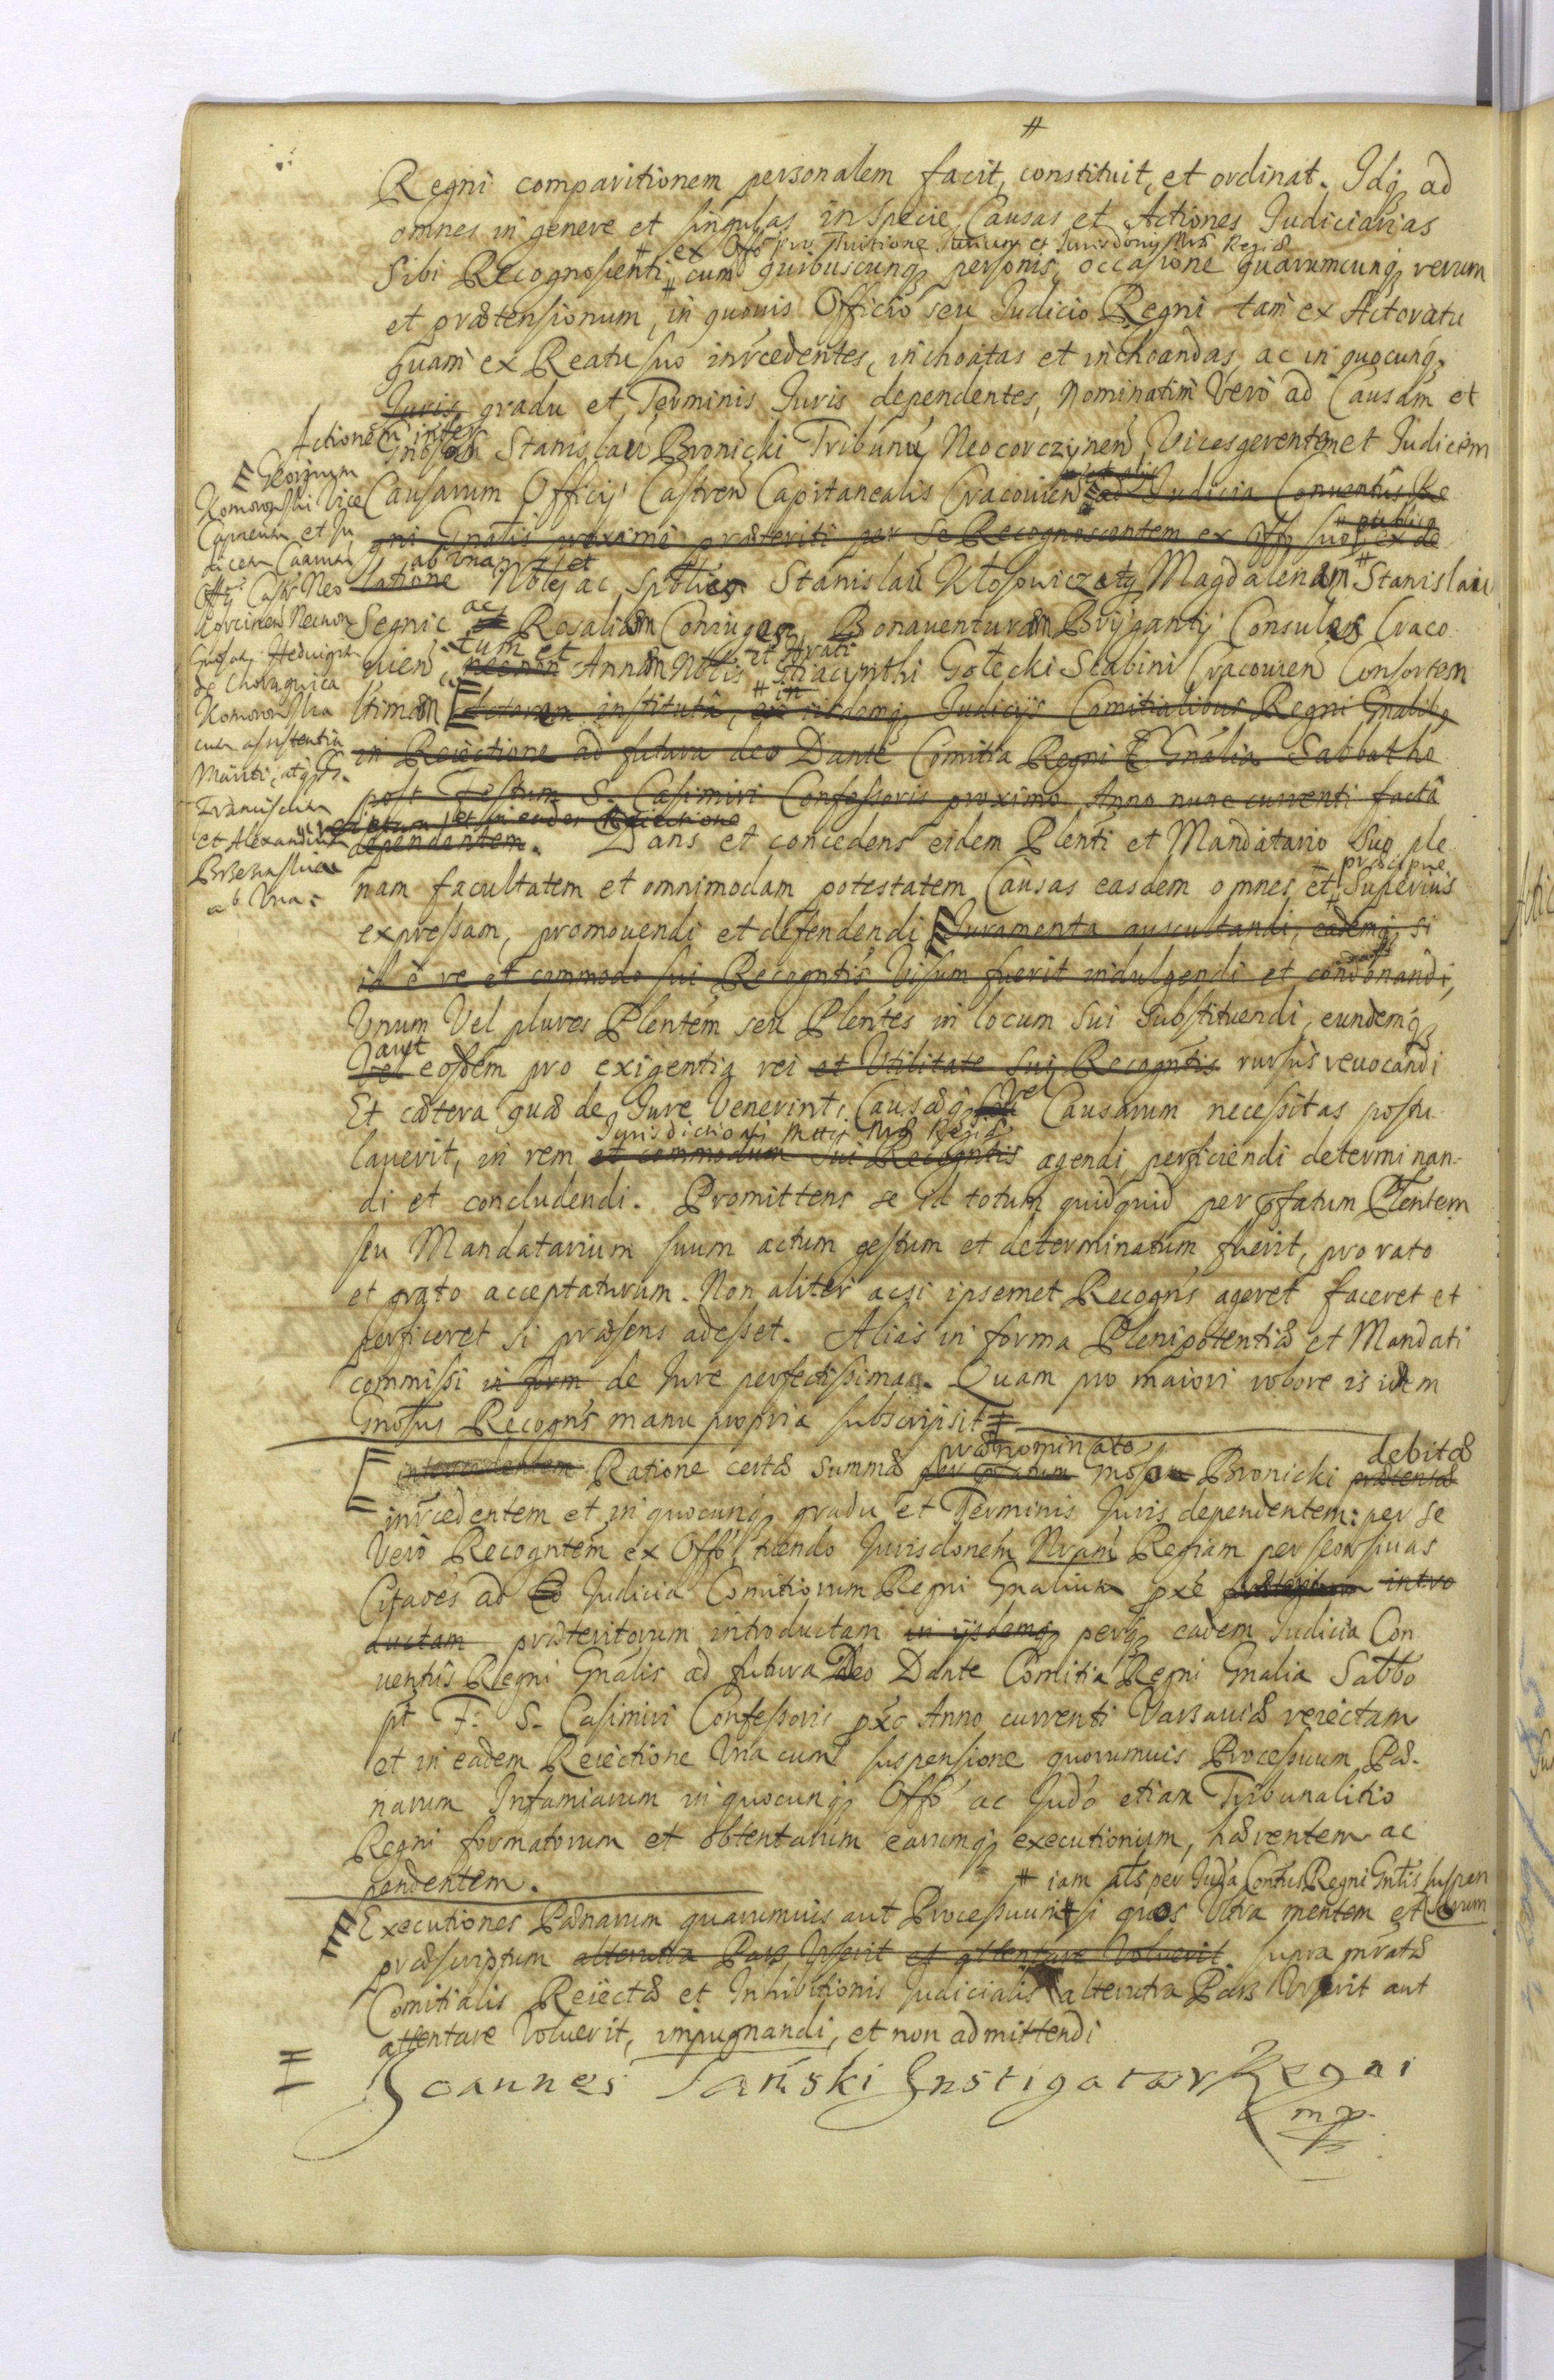 #
Regni comparitionem personalem facit, constituit, et ordinat. Idq ad
omnes in genere et singulas in specie Causas et Actiones Judiciarias
# ex Offo pro Tuitione Jurium et Jurisdonu Mtis Regiæ
sibi Recognoscenti # cum quibuscunq personis, occasione quarumcunq rerum
et prætensionum, in quouis Officio seu Judicio Regni tam ex Actoratu
quam ex Reatu suo inrcedentes, inchoatas et inchoandas, ac in quocunq
Juris gradu et Terminis Juris dependentes, Nominatim Vero ad Causam et
Actionem inter
Stanislau Bronicki Tribunu Neocorczynen Vicesgerentem et Judicem
Causarum Officij Castren Capitanealis Cracouien ad Judicia Conuentus Re
gni Gnalis proxime præteriti per se Recognoscentem ex Offo suo ex de
latione ab Vna et Nobles ac Spbles Stanislau Kłosowicz atq Magdalenam # Stanislau
Segnic ac Rosaliam Coniuges, Bonauenturam Bryganty Consules Craco
uien tum et necnon Annam Nblis et Hiacynthi Gołecki Scabini Cracouien Consortem
ltimam institutâ, in iisdemq Judicijs Comitialibus Regni Gnalib
in Reiectione ad futura deo Dante Comitia Regni Gnalia Sabbatho
post Festum S. Casimiri Confessoris proximo Anno nunc currenti factâ
et in eadem Reiectione
dependentem. Dans et concedens eidem Plenti et Mandatario suo ple
nam facultatem et omnimodam potestatem Causas easdem omnes et # præcipue Superius
expressam, promouendi et defendendi Juramenta auscultandi, eademq si
id è re et commodo sui Recogntis Visum fuerit indulgendi et condonandi,
Vnum Vel plures Plentem seu Plentes in locum sui substituendi, eundemq
Vel aut eosdem pro exigentia rei et Utilitate sui Recogntis rursus reuocandi
Et cætera quæ de Jure Venerint, Causæq vel Causarum necessitas postu
Jurisdictionis Mttis Regiæ
lauerit, in rem et commodum sui Recogntis agendi, perficiendi determinan-
di et concludendi. Promittens se id totum quidquid per pfatum Plentem
seu Mandatarium suum actum gestum et determinatum fuerit, pro rato
et grato acceptaturum. Non aliter acsi ipsemet Recogns ageret faceret et
perficeret si præsens adesset. Alias in forma Plenipotentiæ et Mandati
commissi in form de Jure perfectissima. Quam pro maiori robore is idem
Gnosus Recogns manu propria subscripsit
Georgium
Komorowski Vice
Capneum et Ju
dicem Caarum
Offij Castr Neo
Korcinen Necnon
Gnosam Heduigem
de Choragwica
Komorowska
cum assistentia
Mariti, atq
Franciscum
et Alexandrum
Brzezinskie
ab Vna:
intercedentem Ratione certæ summæ per prænominato Gnosum Bronicki debitæ prætensæ
inrcedentem et in quocunq gradu et Terminis Juris dependentem: per se
Vero Recogntem ex Offo, tuendo Jurisdonem Nram Regiam per seorsiuas
Citaoes ad Judicia Comitiorum Regni Gnalium pxe intro
ductam præteritorum introductam in ijsdemq perq eadem Judicia Con
uentus Regni Gnalis ad futura Deo Dante Comitia Regni Gnalia Sabbo
pt F: S. Casimiri Confessoris pxo Anno currenti Varsauiæ reiectam
et in eadem Reiectione Vna cum suspensione quorumuis Processuum Pæ-
narum Infamiarum in quocunq Offo ac Judo etiam Tribunalitio
Regni formatorum et obtentarum earumq executionum, hærentem ac
pendentem. # iam als per Juda Contus Regni Gnlis suspen
sarum
Executiones Pænarum quarumuis aut Processuum si quos Ultra mentem et
præscriptum alterutra Pars Vrserit et attentare Voluerit supra mratæ
Comitialis Reiectæ et Inhibitionis Judicialis alterutra Pars Vrserit aut
attentare Voluerit, impugnandi, et non admittendi
Joannes Jański Instigator Regni
mp